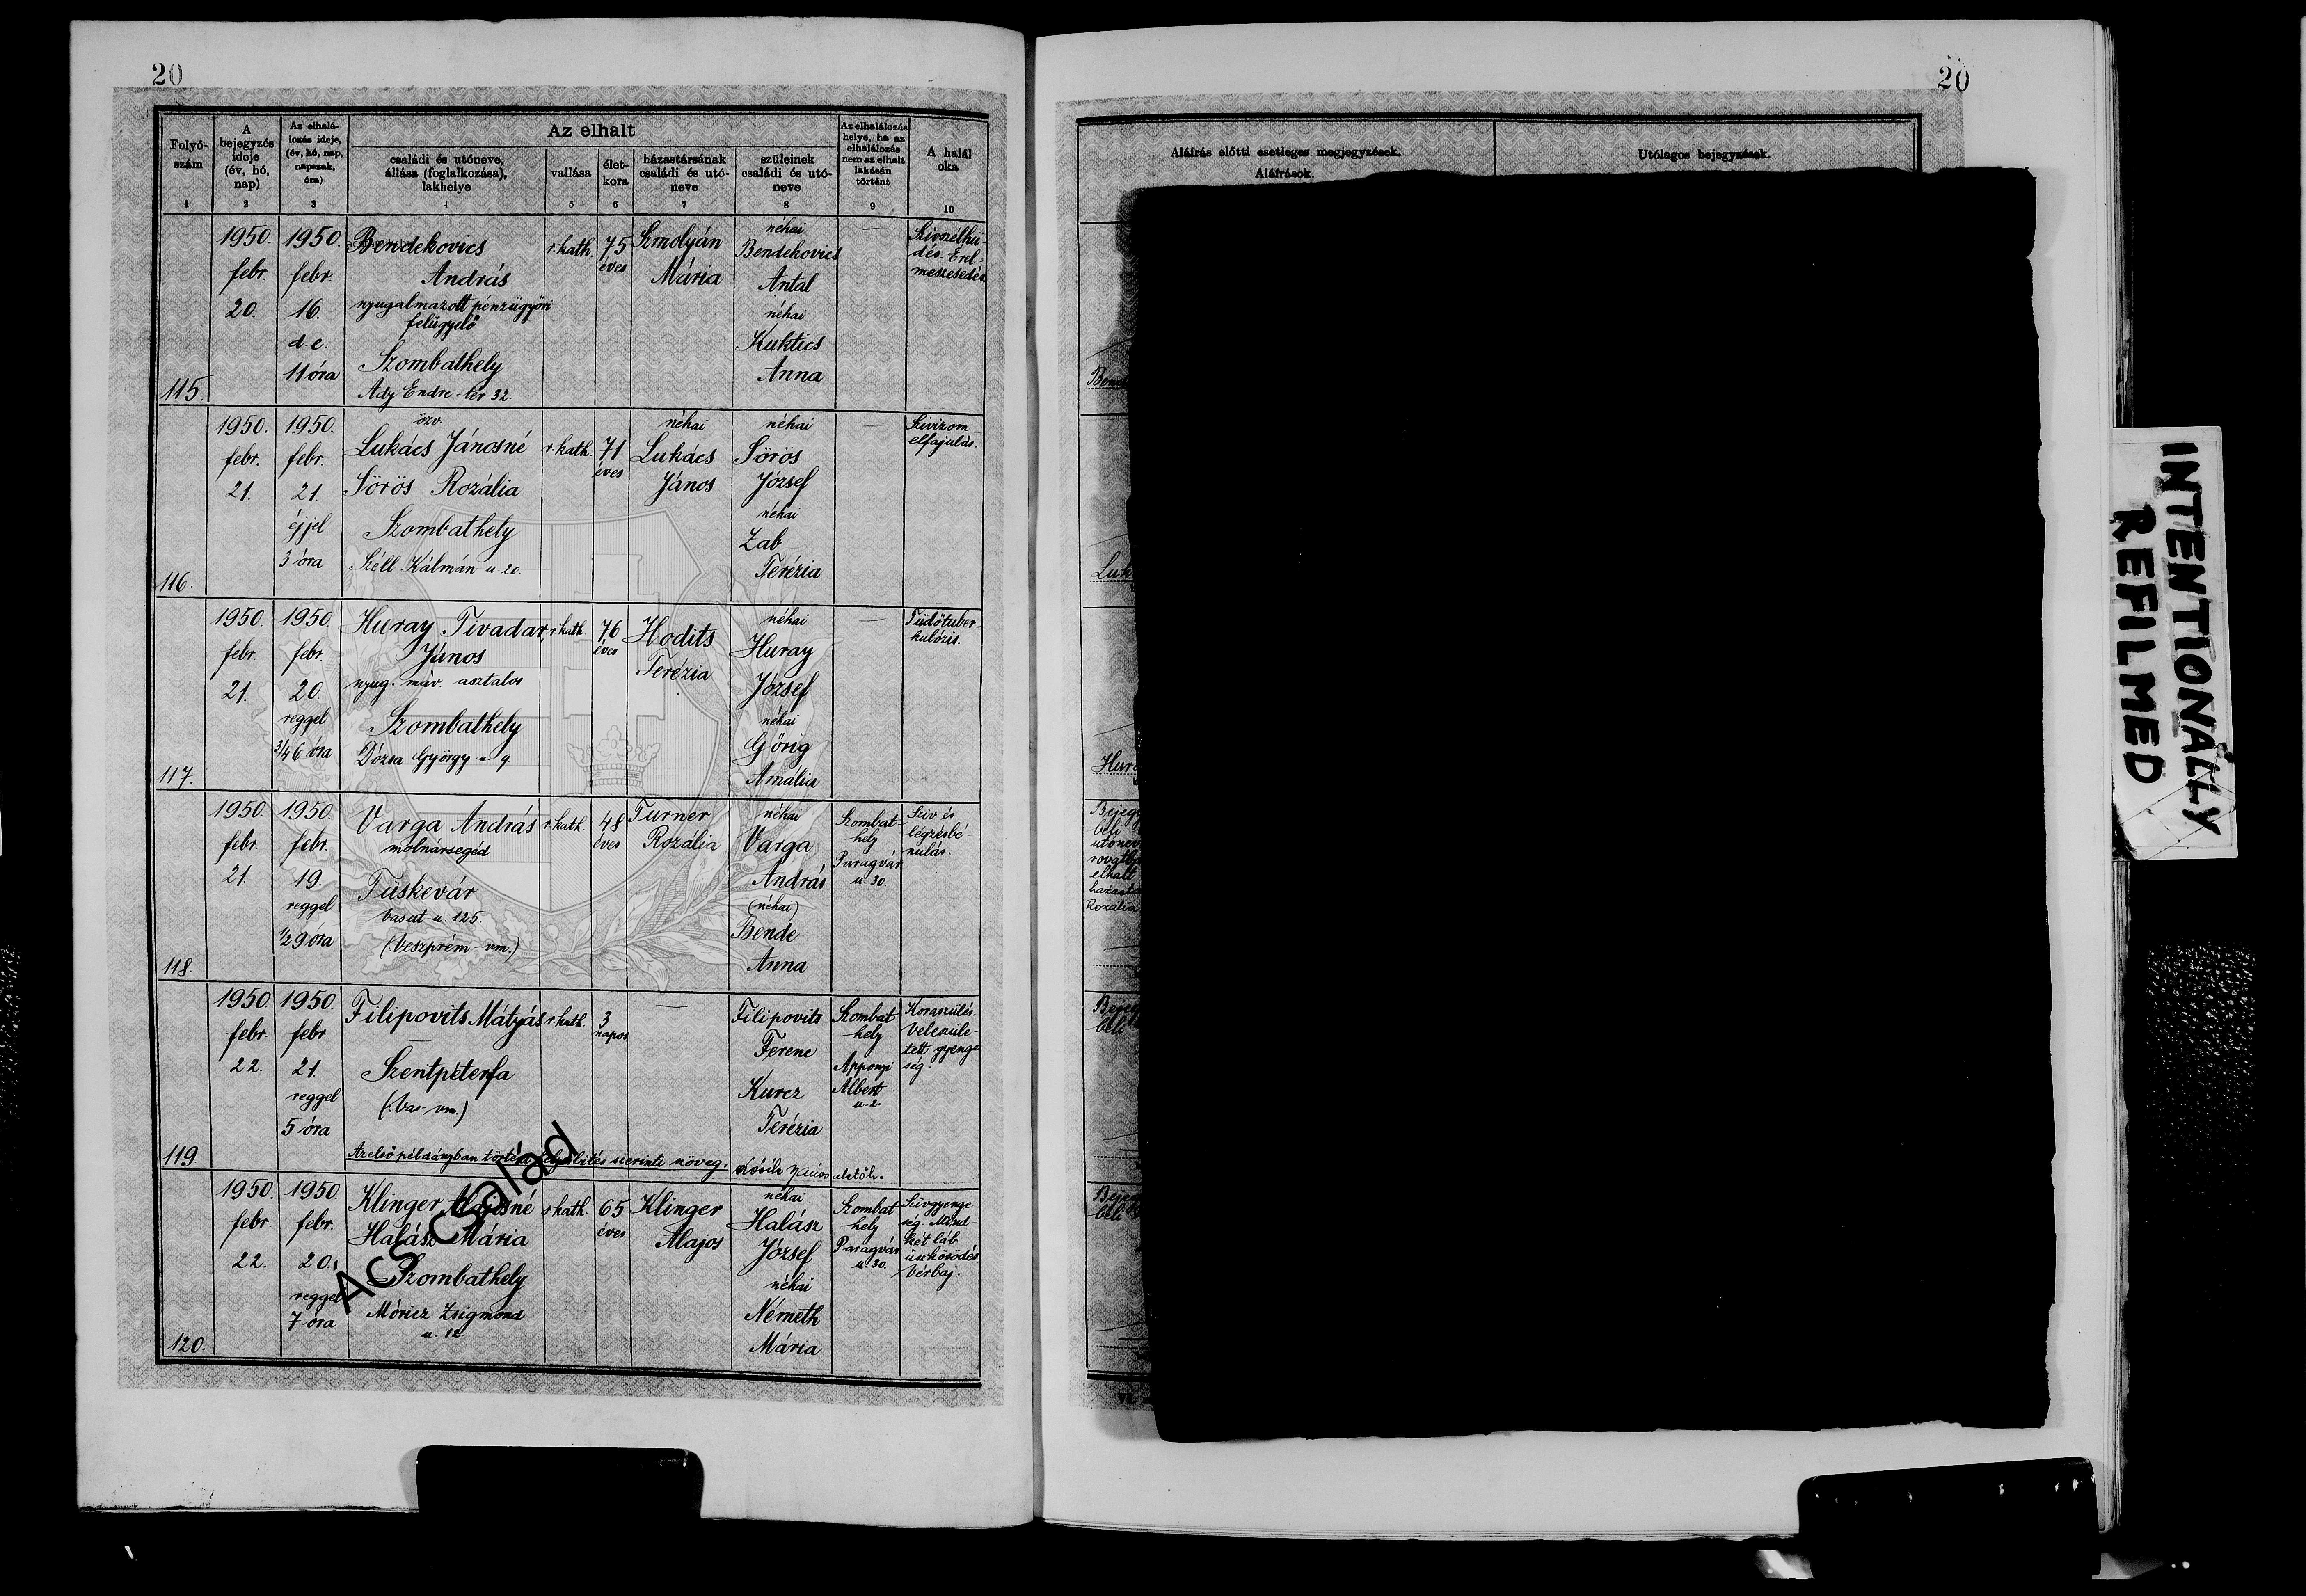 20
Folyó-
szám
1
A
bejegyzés
ideje
(év, hó,
nap)
2
Az elhalá-
lozás ideje,
(év, hó, nap,
napszak,
óra)
3
Az elhalt
családi és utóneve,
állása (foglalkozása),
lakhelye
4
vallása
5
élet-
kora
6
házastársának
családi és utó-
neve
7
szüleinek
családi és utó-
neve
8
Az elhalálozás
helye, ha az
elhalálozás
nem az elhalt
lakásán
történt
9
A halál
oka
10
115.
1950.
febr.
20.
1950.
febr.
16.
d. e.
11 óra
Bendekovics
András
nyugalmazott pénzügyőri
felügyelő
Szombathely
Ady Endre-tér 32.
r. kath.
75
éves
Szmolyán
Mária
néhai
Bendekovics
Antal
néhai
Kuktics
Anna
—
Szivszélhű-
dés. Érel-
meszesedés.
116.
1950.
febr.
21.
1950.
febr.
21.
éjjel
3 óra
özv.
Lukács Jánosné
Sörös Rozália
Szombathely
Széll Kálmán u 20.
r. kath.
71
éves
néhai
Lukács
János
néhai
Sörös
József
néhai
Zab
Terézia
—
Szivizom
elfajulás.
117.
1950.
febr.
21.
1950.
febr.
20.
reggel
3/4 6 óra
Huray Tivadar,
János
nyug. máv. asztalos
Szombathely
Dózsa György u 9
r. kath
76
éves
Hodits
Terézia
néhai
Huray
József
néhai
Görig
Amália
—
Tüdőtuber-
kulózis.
118.
1950.
febr.
21.
1950
febr.
19.
reggel
1/2 9 óra
Varga András
molnársegéd
Tüskevár
Vasut u. 125.
(Veszprém vm.)
r. kath.
48
éves
Turner
Rozália
néhai
Varga
András
(néhai)
Bende
Anna
Szombat-
hely
Paragvár
u. 30.
Sziv és
légzésbé-
nulás.
119
1950.
febr.
22.
1950.
febr
21.
reggel
5 óra
Filipovits Mátyás
Szentpéterfa
(Vas vm.)
r. kath.
3
napos
—
Filipovits
Ferenc
Kurcz
Terézia
Szombat
hely
Apponyi
Albert
u. 2.
Koraszülés.
Veleszüle-
tett gyenge
ség.
Az első példányban történt szerinti szöveg.
120.
1950.
febr.
22.
1950
febr.
20.
reggel
7 óra
Klinger Alajosné
Halász Mária
Szombathely
Móricz Zsigmond
u. 12
r. kath.
65
éves
Klinger
Alajos
néhai
Halász
József
néhai
Németh
Mária
Szombat
hely
Paragvár
u. 30.
Szivgyenge
ség. Mind
két láb
üszkösödés
Vérbaj.
Ács Család
20
Aláírás előtti esetleges megjegyzések.
Aláírások.
Utólagos bejegyzések.
INTENTIONALLY
REFILMED